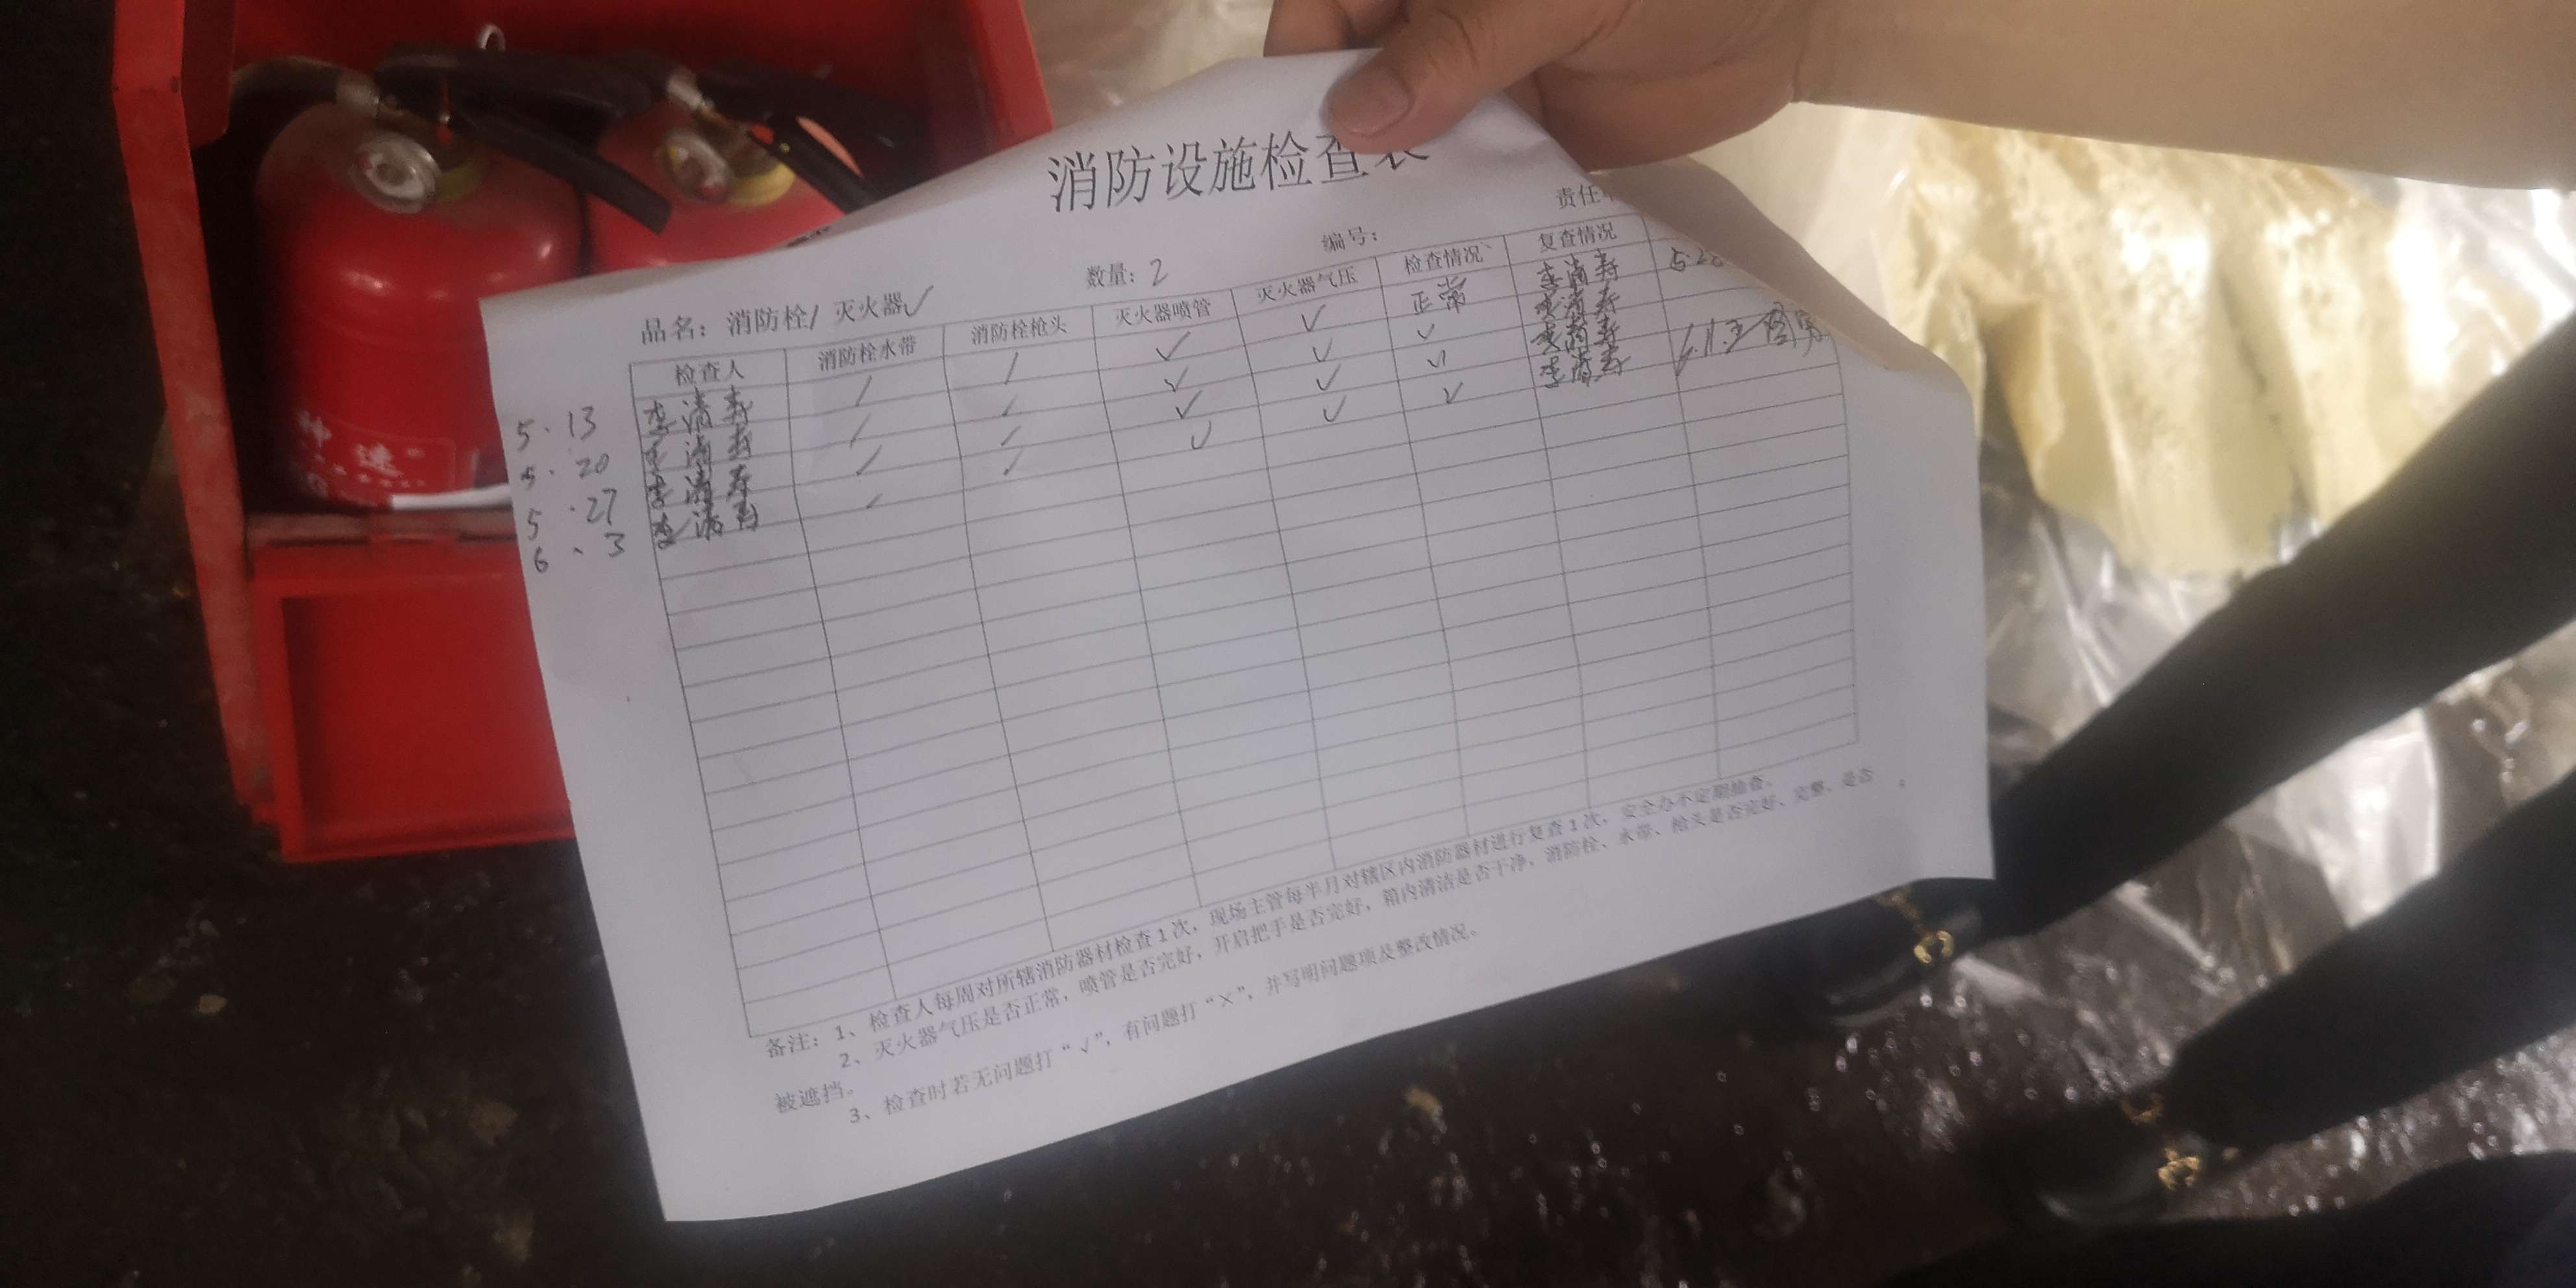 消防设施检查表
责任
品名：消防栓/ 灭火器√ 数量：2 编号：
检查人 消防栓水带 消防栓枪头 灭火器喷管 灭火器气压 检查情况 复查情况
5.13 李满寿 / / √ √ 正常 李满寿 5.2
5.20 李满寿 / / √ √ √ 李满寿
5.27 李满寿 / / √ √ √ 李满寿 6.1.
6.3 李满寿 / / √ √ √ 李满寿
备注：1、检查人每周对所辖消防器材检查1次，现场主管每半月对辖区内消防器材进行复查1次，安全办不定期抽查。
2、灭火器气压是否正常，喷管是否完好，开启把手是否完好，箱内清洁是否干净，消防栓、水带、枪头是否完好、完整、是否
被遮挡。
3、检查时若无问题打“√”，有问题打“×”，并写明问题项及整改情况。
神速